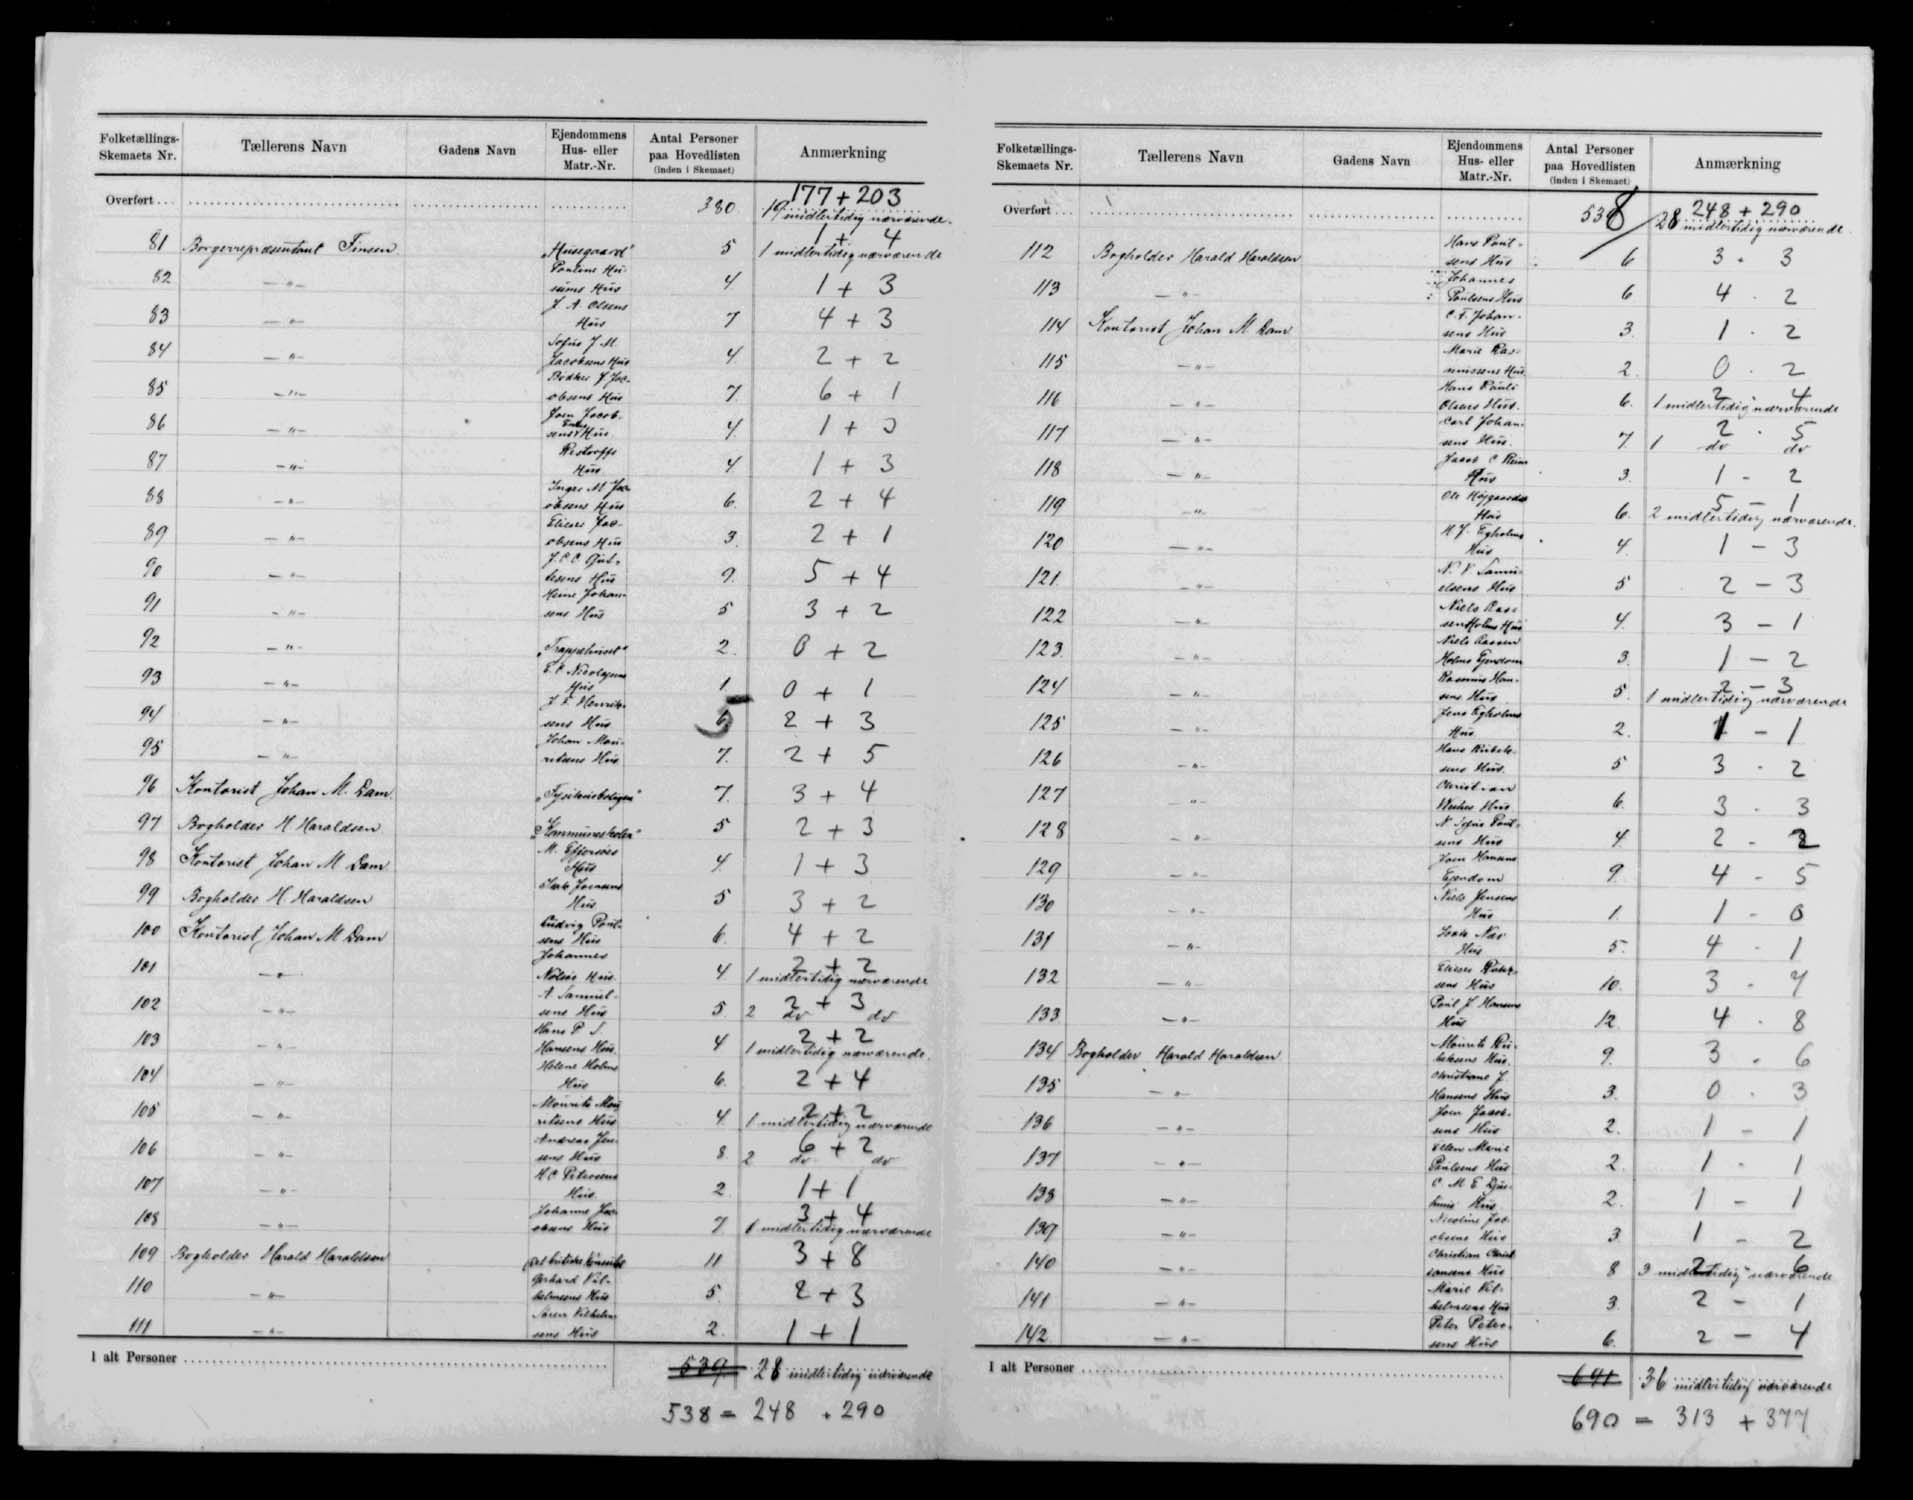 Folketællings-Skemaets Nr. Tællerens Navn Gadens Navn Ejendommens Hus- eller Matr.-Nr. Antal Personer paa Hovedlisten (inden i Skemaet) Anmærkning
Overført 380 177 + 203
19 midlertidig nærværende.
81 Borgerrepræsentant Finsen "Husegaard" 5 1 + 4
1 midlertidig nærværende
82 —"— Pouline Hus 4 1 + 3
83 —"— J. A. Olsens Hus 7 4 + 3
84 —"— Sofus J. M. Jacobsens Hus 4 2 + 2
85 —"— Bødker J. Jacobsens Hus 7 6 + 1
86 —"— Joen Jacobsens Hus 4 1 + 3
87 —"— Restorffs Hus 4 1 + 3
88 —"— Inger M. Jacobsens Hus 6 2 + 4
89 —"— Eliene Jacobsens Hus 3 2 + 1
90 —"— J. C. C. Hus 9 5 + 4
91 —"— Johansens Hus 5 3 + 2
92 —"— "Trappehuset" 2 0 + 2
93 —"— E. C. Hus 1 0 + 1
94 —"— J. F. Henriksens Hus 5 2 + 3
95 —"— Johan Mouritsens Hus 7 2 + 5
96 Kontorist Johan M. Dam 7 3 + 4
97 Bogholder H Haraldsen "Kommuneskolen" 5 2 + 3
98 Kontorist Johan M Dam M. Hus 4 1 + 3
99 Bogholder H. Haraldsen Hus 5 3 + 2
100 Kontorist Johan M Dam Ludvig Poulsens Hus 6 4 + 2
101 —"— Johannes Hus 4 2 + 2
1 midlertidig nærværende
102 —"— A. Samuelsens Hus 5 2 + 3
2 do do
103 —"— Hans P. J. Hansens Hus 4 2 + 2
1 midlertidig nærværende.
104 —"— Helene Holms Hus 6 2 + 4
105 —"— Mourits Mouritsens Hus 4 2 + 2
1 midlertidig nærværende
106 —"— Andreas Jensens Hus 8 6 + 2
2 do do
107 —"— H. C. Petersens Hus 2 1 + 1
108 —"— Johanne Jacobsens Hus 7 3 + 4
1 midlertidig nærværende
109 Bogholder Harald Haraldsen 11 3 + 8
110 —"— Gerhard Vilhelmsens Hus 5 2 + 3
111 —"— Søren Vilhelmsens Hus 2 1 + 1
I alt Personer 539 28 midlertidig nærværende
538 = 248 + 290
Folketællings-Skemaets Nr. Tællerens Navn Gadens Navn Ejendommens Hus- eller Matr.-Nr. Antal Personer paa Hovedlisten (inden i Skemaet) Anmærkning
Overført 538 248 + 290
28 midlertidig nærværende
112 Bogholder Harald Haraldsen Hans Poulsens Hus 6 3 - 3
113 —"— Johannes Poulsens Hus 6 4 - 2
114 Kontorist Johan M Dam C. F. Johansens Hus 3 1 - 2
115 —"— Marie Rasmussens Hus 2 0 - 2
116 —"— Hans Pauli Olsens Hus 6 2 - 4
1 midlertidig nærværende
117 —"— Carl Johansens Hus 7 2 - 5
1 do do
118 —"— Jacob C Hus 3 1 - 2
119 —"— Ole Højgaards Hus 6 5 - 1
2 midlertidig nærværende.
120 —"— H. J. Egholms Hus 4 1 - 3
121 —"— N. V. Samuelsens Hus 5 2 - 3
122 —"— Niels Holms Hus 4 3 - 1
123 —"— Niels Holms Ejendom 3 1 - 2
124 —"— Rasmus Hansens Hus 5 2 - 3
1 midlertidig nærværende
125 —"— Jens Egholms Hus 2 1 - 1
126 —"— Hans Hus 5 3 - 2
127 —"— Christian Hus 6 3 - 3
128 —"— N. Poulsens Hus 4 2 - 2
129 —"— Joen Hansens Ejendom 9 4 - 5
130 —"— Niels Jensens Hus 1 1 - 0
131 —"— Hus 5 4 - 1
132 —"— Hus 10 3 - 7
133 —"— Poul J. Hansens Hus 12 4 - 8
134 Bogholder Harald Haraldsen Mourits Hus 9 3 - 6
135 —"— Christiane J. Hansens Hus 3 0 - 3
136 —"— Joen Jacobsens Hus 2 1 - 1
137 —"— Ellen Marie Poulsens Hus 2 1 - 1
138 —"— C. M. E. Hus 2 1 - 1
139 —"— Nicoline Jacobsens Hus 3 1 - 2
140 —"— Christian Christiansens Hus 8 2 6
3 midlertidig nærværende
141 —"— Marie Vilhelmsens Hus 3 2 - 1
142 —"— Peter Petersens Hus 6 2 - 4
I alt Personer 691 36 midlertidig nærværende
690 = 313 + 377